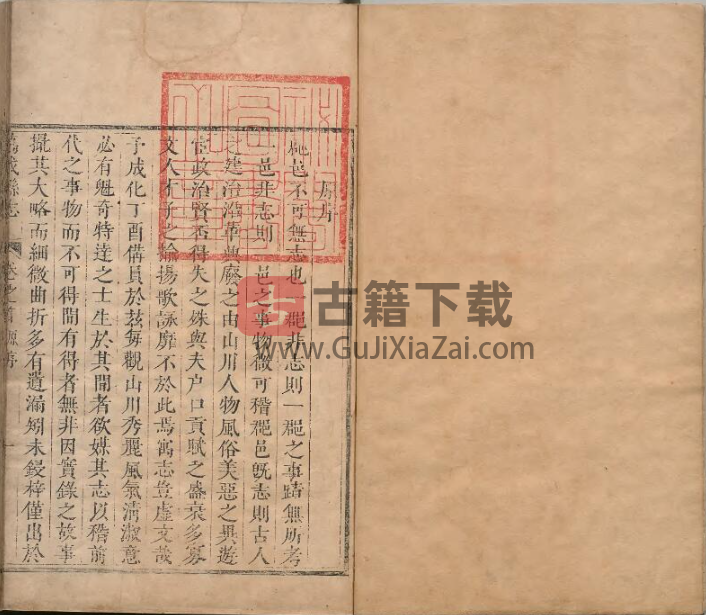 原序
縣邑不可無志也縣非志則一縣之事蹟無所考
一邑非志則一邑之事物微可稽縣邑既志則古人
之建治沿革興廢之由山川人物風俗美惡之異遊
官政治賢否得失之殊與夫户口貢賦之盛衰多寡
文人才子之揄揚歌詠靡不於此焉寓志豈虛文哉
予成化丁酉備員於茲每觀山川秀麗風氣淸淑意
必有魁奇特達之士生於其閒者欲媒其志以稽前
代之事物而不可得閒有得者無非因實錄之故事
撮其大略而細微曲折多有遺漏矧未鋟梓僅出於
縣志
卷之首
原序
一
古籍下载
www.GuJiXiaZai.com